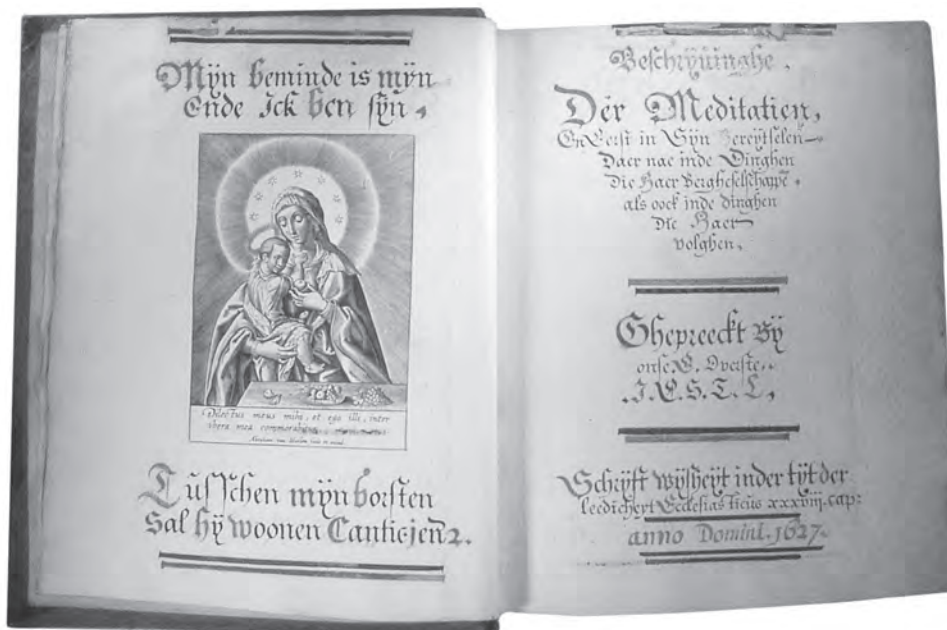 Mÿn beminde is mÿn
Ende Ick ben sÿn,
Dilectus meus mihi, et ego illi, inter
ubera mea commorabitur.
Tusschen mÿn borsten
sal hÿ woonen Cantic. 1 en 2.
Beschrÿvinghe.
Der Meditatien,
En Eerst in Sÿn bereÿtselen
Daer nae inde Dinghen
Die Haer Vergheselschappē.
als oock inde dinghen
Die Haer
volghen.
Ghepreeckt By
onse E. Overste.
J.E.S.T.L.
Schrÿft wÿsheÿt inder tÿt der
leedicheÿt Ecclesiasticus xxxviij. cap:
anno Domini. 1627.